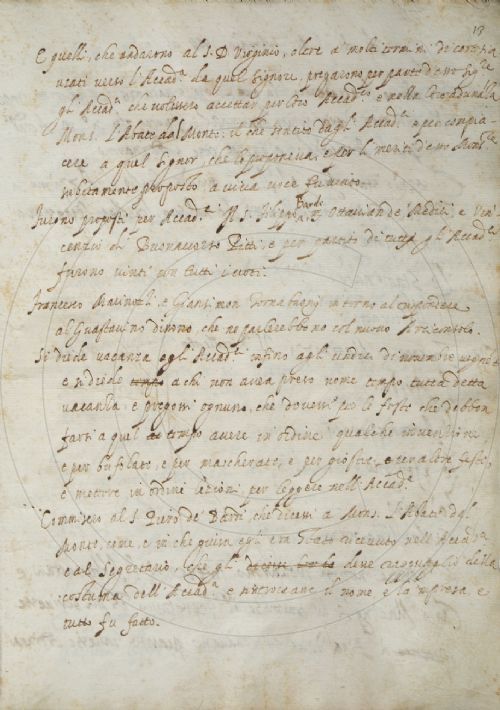 13
E quelli, che andaerno al S. D Virginio, oltre a molti termini di cortesia
usati verso l'Accad.ª da quel Signore, pregarono per parte d'esso Sig.re
gl'Accad.ci che volessero accettar per loro Accad.co e nella loro adunanza
Mons. l'Abate dal Monte: il che sentito dagl'Accad.ci e per compia
cere a quel Signor, che lo proponeva, e per li meriti d'esso Mons.re
subitamente proposto a viva voce fu vinto.
Furono proposti per Accad.ci il S. Filippo Bardi, Ottavian de Medici e Vin
cenzio di Buonaccorso Pitti, e per partito di tutti gl'Accad.ci
furono vinti con tutti i voti.
Francesco Marinozzi, e Giansimon Tornabuoni intorno al rispondere
al Guastavino dissono, che ne parlerebbono col nuovo Arciconsolo.
Si diede vacanza agl'Accad.ci infino agli undici di novembre
e si diede tempo a chi non avea preso nome tempo tutta detta
vacanza: e pregossi ognuno, che dovessi per le feste che debbon
farsi a quel tempo avere in ordine qualche invenzione
e per bufolate, e per mascherate, e per giostre, e per altre feste,
e mettere in ordine lezioni per leggere nell'Accad.ª
Commisero al S. Piero de' Bardi, che dicessi a Mons. l'Abate dal
Monte, come, e in che guisa egli era stato ricevuto nell'Accad.ª
e al Segretario, che gl' deve ragguaglio della
costuma dell'Accad.ª e mettessene il nome e la impresa e
tutto fu fatto.